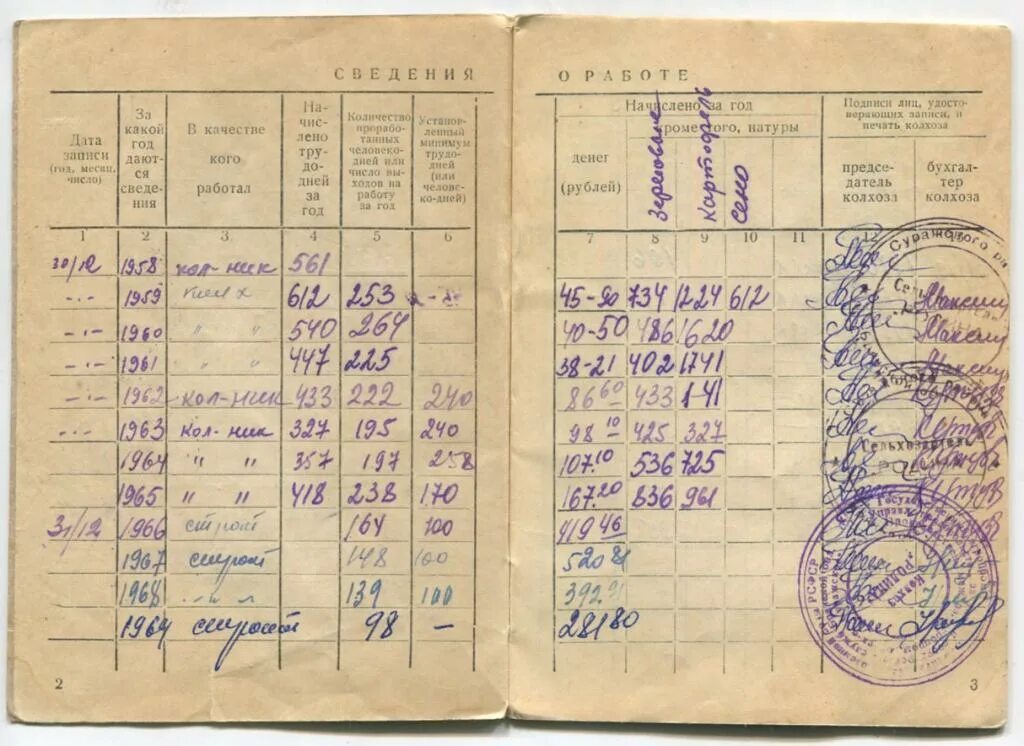 СВЕДЕНИЯ О РАБОТЕ
Дата записи (год, месяц, число)
За какой год даются сведения
В качестве кого работал
Начислено трудодней за год
Количество проработанных человеко-дней или число выходов на работу за год
Установленный минимум трудодней (или человеко-дней)
Начислено за год
денег (рублей)
кроме того, натуры
зерновые
картофель
сено
Подписи лиц, удостоверяющих записи, и печать колхоза
председатель колхоза
бухгалтер колхоза
1 2 3 4 5 6 7 8 9 10 11 12 13
30/12 1958 кол-ник 561
-·- 1959 612 253 45-90 734 1224 612
-·- 1960 " " 540 264 40-50 486 1620
-·- 1961 " " 447 225 38-21 402 1741
-·- 1962 кол-ник 433 222 240 86 60 433 141
-·- 1963 кол-ник 327 195 240 98 10 425 327
1964 " " 357 197 258 107.10 536 725
1965 " " 418 238 170 167.20 836 961
31/12 1966 строит 164 100 419 46
1967 строит 148 100 520 81
1968 139 100 392
1969 строит 98 — 281 80
Суражского
Сельхозартель
РСФСР
Колхоз
"РОДИНА"
2
3